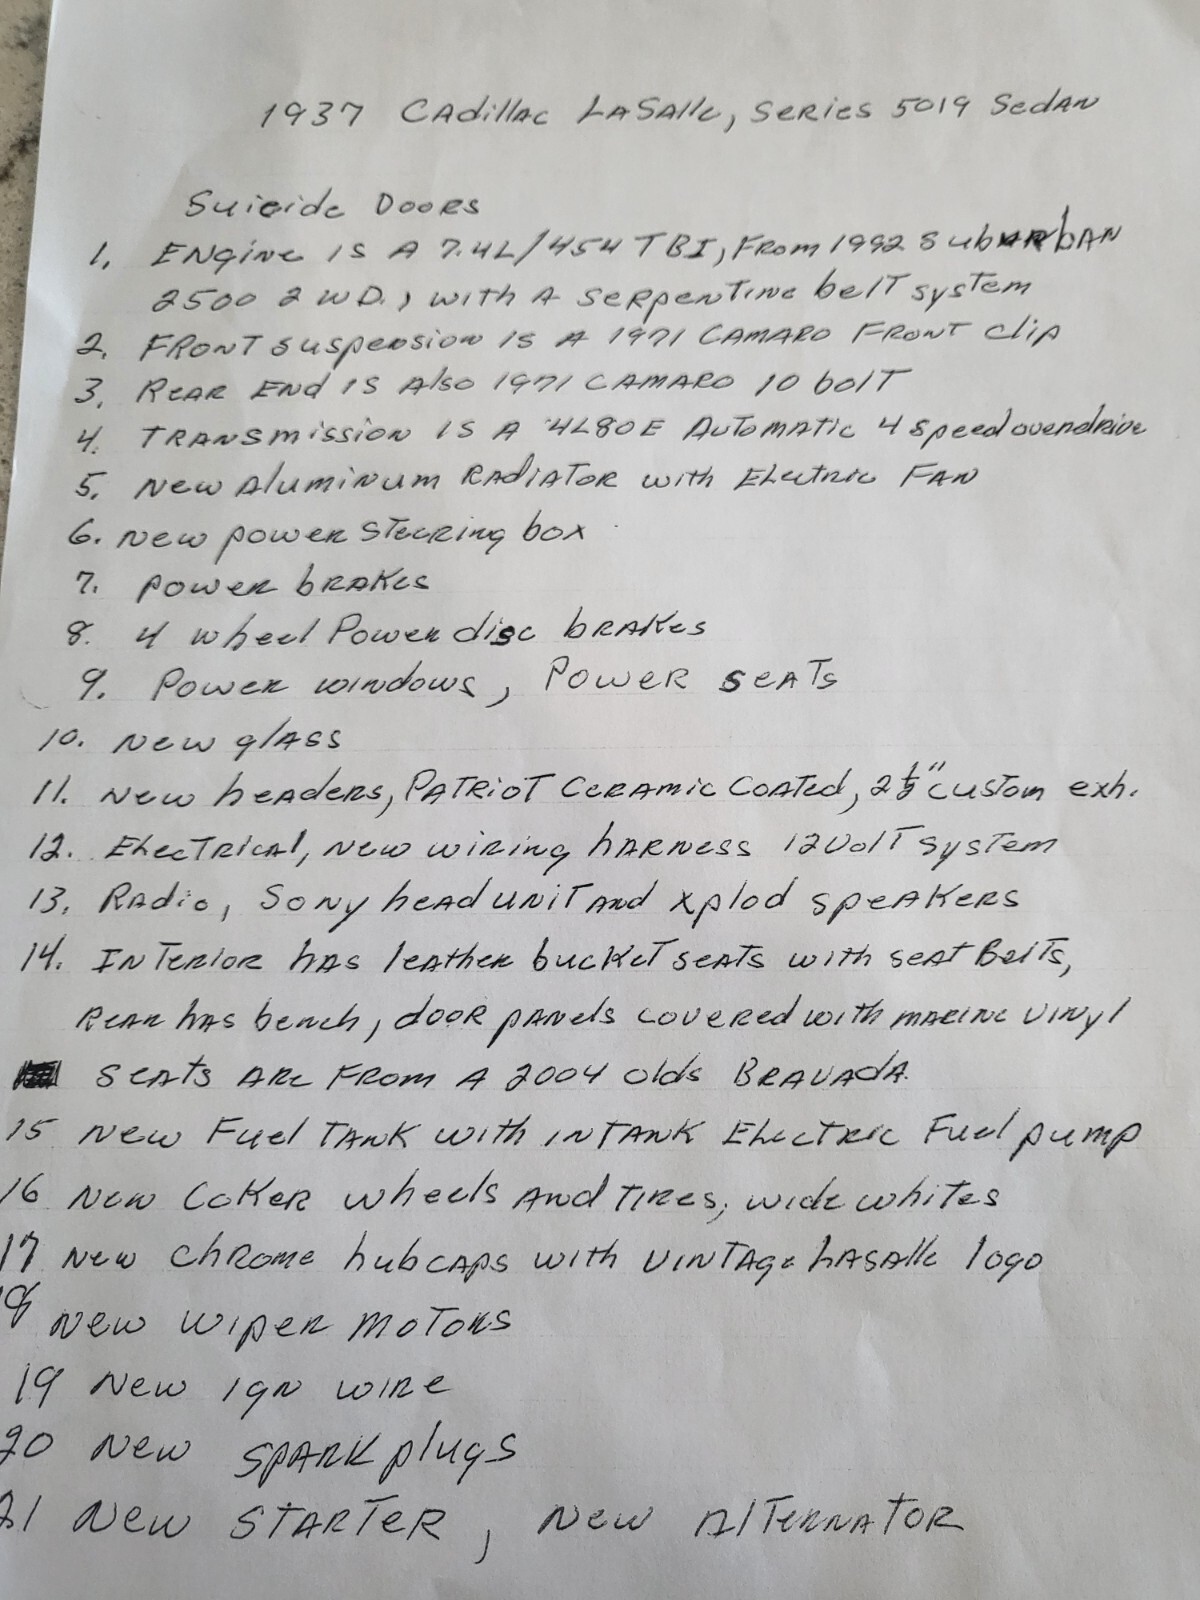 1937 Cadillac LaSalle, Series 5019 Sedan
Suicide Doors
1. Engine is a 7.4L/454 TBI, From 1992 Suburban
2500 2 WD., with a serpentine belt system
2. Front suspension is a 1971 Camaro Front clip
3. Rear End is also 1971 Camaro 10 bolt
4. Transmission is a 4L80E Automatic 4 speed overdrive
5. New Aluminum Radiator with Electric Fan
6. New power steering box
7. power brakes
8. 4 wheel Power disc brakes
9. Power windows, Power seats
10. New glass
11. New headers, Patriot Ceramic Coated, 2½" custom exh.
12. Electrical, New wiring harness 12 Volt system
13. Radio, Sony head unit and xplod speakers
14. Interior has leather bucket seats with seat Belts,
Rear has bench, door panels covered with marine vinyl
seats are from a 2004 olds Bravada.
15 New Fuel Tank with intank Electric Fuel pump
16 New Coker wheels and tires, wide whites
17 New chrome hubcaps with vintage Lasalle logo
18 New wiper motors
19 New ign wire
20 New spark plugs
21 New starter, New Alternator